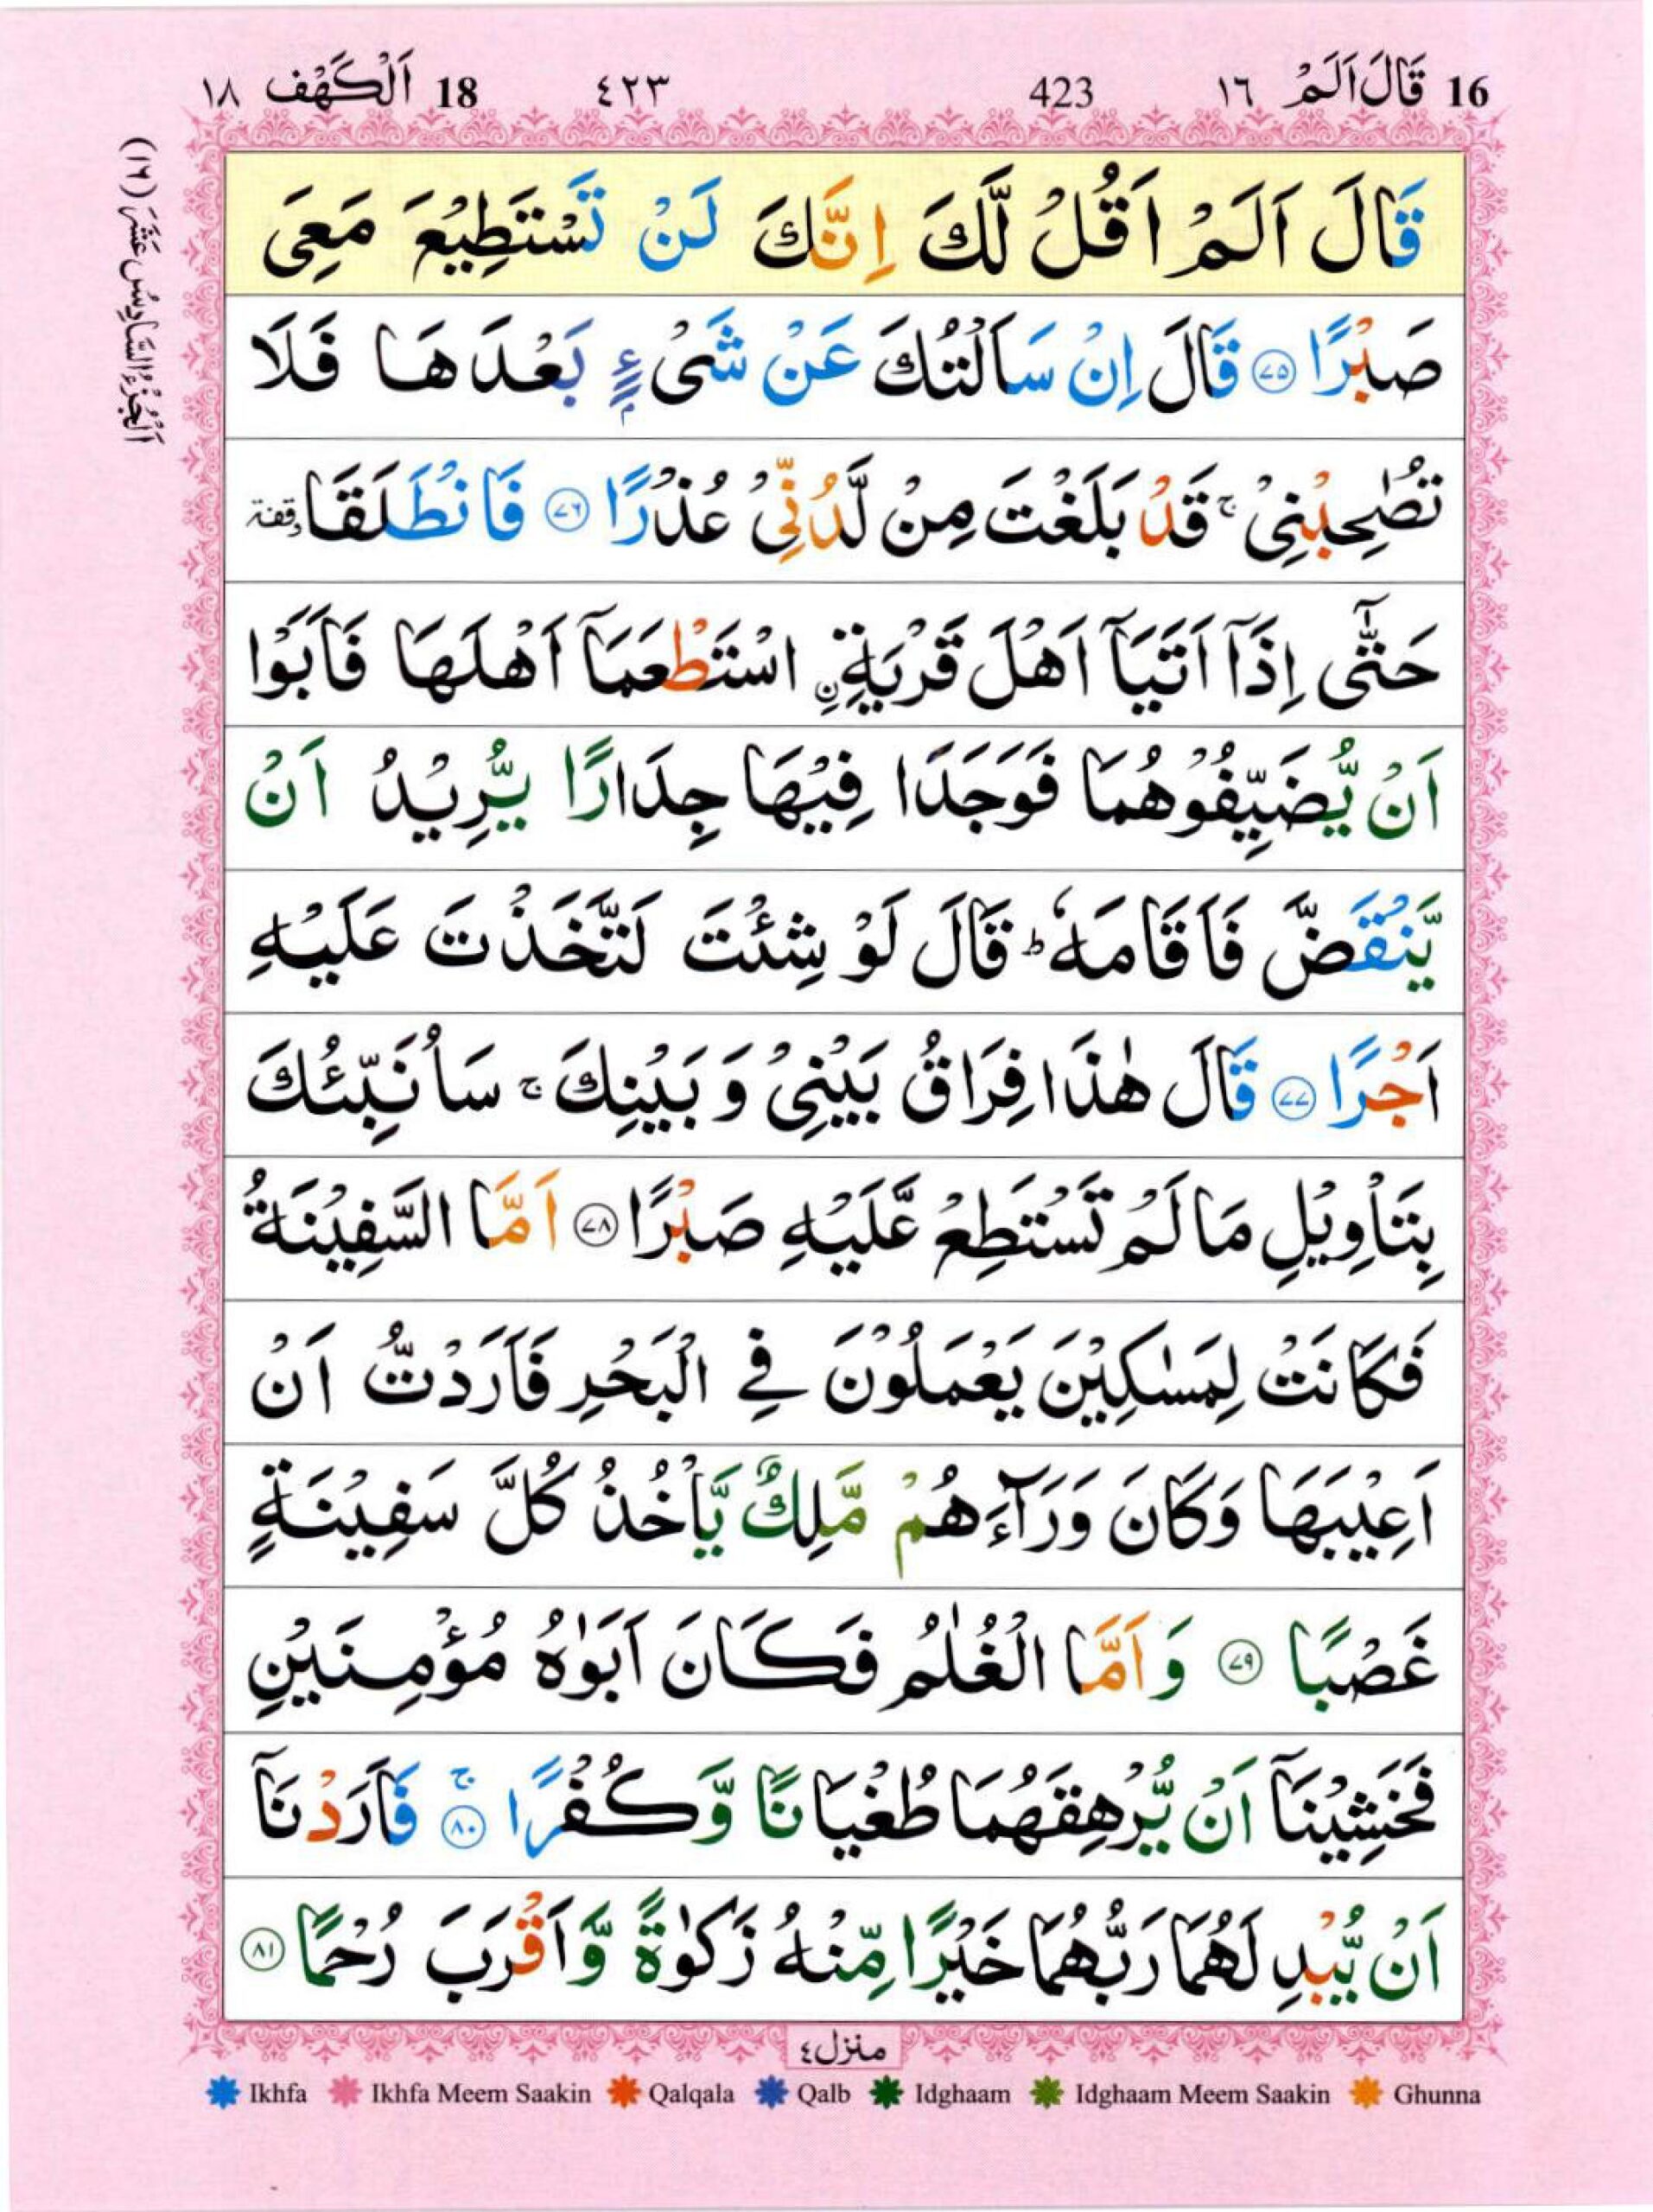 16 قَالَ اَلَمْ ١٦ 423 ٤٢٣ 18 اَلْكَهْف ١٨
اَلْجُزْءُ السَّادِسُ عَشَرَ (١٦)
قَالَ اَلَمْ اَقُلْ لَّكَ اِنَّكَ لَنْ تَسْتَطِيْعَ مَعِىَ
صَبْرًا ۝٧٥ قَالَ اِنْ سَاَلْتُكَ عَنْ شَىْءٍۭ بَعْدَهَا فَلَا
تُصٰحِبْنِىْ ۚ قَدْ بَلَغْتَ مِنْ لَّدُنِّىْ عُذْرًا ۝٧٦ فَانْطَلَقَا وقفة
حَتّٰٓى اِذَآ اَتَيَآ اَهْلَ قَرْيَةِ ۨ اسْتَطْعَمَآ اَهْلَهَا فَاَبَوْا
اَنْ يُّضَيِّفُوْهُمَا فَوَجَدَا فِيْهَا جِدَارًا يُّرِيْدُ اَنْ
يَّنْقَضَّ فَاَقَامَهٗ ؕ قَالَ لَوْ شِئْتَ لَتَّخَذْتَ عَلَيْهِ
اَجْرًا ۝٧٧ قَالَ هٰذَا فِرَاقُ بَيْنِىْ وَ بَيْنِكَ ۚ سَاُنَبِّئُكَ
بِتَاْوِيْلِ مَا لَمْ تَسْتَطِعْ عَّلَيْهِ صَبْرًا ۝٧٨ اَمَّا السَّفِيْنَةُ
فَكَانَتْ لِمَسٰكِيْنَ يَعْمَلُوْنَ فِى الْبَحْرِ فَاَرَدْتُّ اَنْ
اَعِيْبَهَا وَكَانَ وَرَآءَهُمْ مَّلِكٌ يَّاْخُذُ كُلَّ سَفِيْنَةٍ
غَصْبًا ۝٧٩ وَاَمَّا الْغُلٰمُ فَكَانَ اَبَوٰهُ مُؤْمِنَيْنِ
فَخَشِيْنَآ اَنْ يُّرْهِقَهُمَا طُغْيَانًا وَّكُفْرًا ۚ ۝٨٠ فَاَرَدْنَآ
اَنْ يُّبْدِلَهُمَا رَبُّهُمَا خَيْرًا مِّنْهُ زَكٰوةً وَّاَقْرَبَ رُحْمًا ۝٨١
منزل ٤
Ikhfa Ikhfa Meem Saakin Qalqala Qalb Idghaam Idghaam Meem Saakin Ghunna